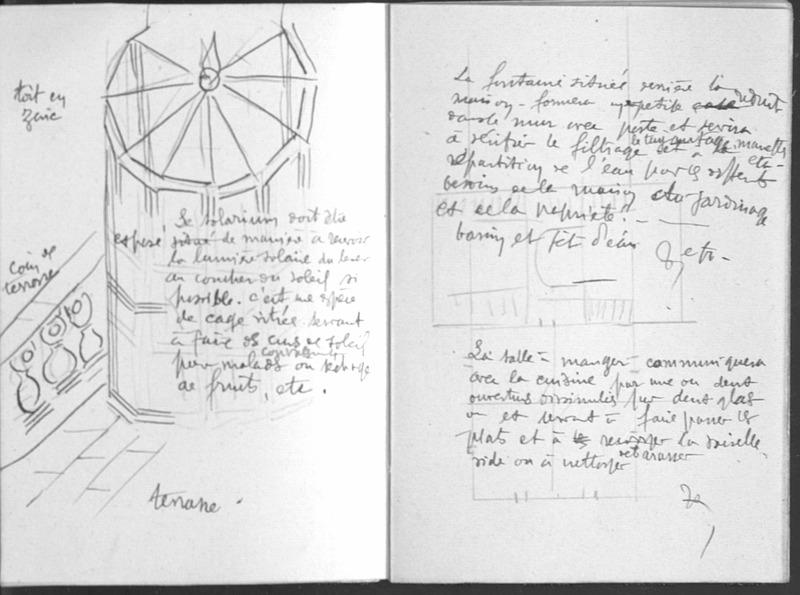 toit en
zinc
Le solarium doit être
exposé situé de manière a recevoir
la lumière solaire du lever
au coucher du soleil si
possible. c'est une espèce
de cage vitrée servant
a faire des cures de soleil
pour malades convalescents ou séchage
de fruits, etc.
coin de
terrasse
terrasse
La fontaine située derrière la
maison - formera une petite réduit
dans le mur avec porte et servira
à vérifier le filtrage
répartition de l'eau pour les différents
besoins de la maison du jardinage
et de la propriété.
bassin et jet d'eau
etc -
La salle à manger communiquera
avec la cuisine par une ou deux
ouvertures dissimulées par deux
et servant à faire passer les
plats et à la vaisselle
vide ou à nettoyer débarasser